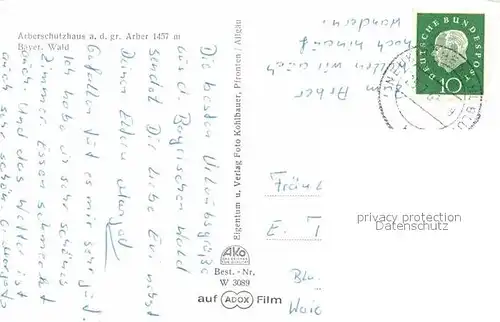 Arberschutzhaus a. d. gr. Arber 1457 m
Bayer. Wald
Die besten Urlaubsgrüße
aus d. Bayrischen Wald
sendet Dir liebe Evi nebst
Deiner Eltern Margot
Gefallen tut es mir sehr gut.
Ich habe ein sehr schönes
Zimmer. Essen schmeckt
auch. Und das Wetter ist
auch sehr schön.
Zum Arber
wollen wir auch
noch hinauf
wandern.
Eigentum u. Verlag Foto Kohlbauer, Pfronten / Allgäu
AKO
Best. - Nr.
W 3089
auf ADOX Film
DEUTSCHE BUNDESPOST
10
Fränz
E. T
Blu
privacy protection
Datenschutz